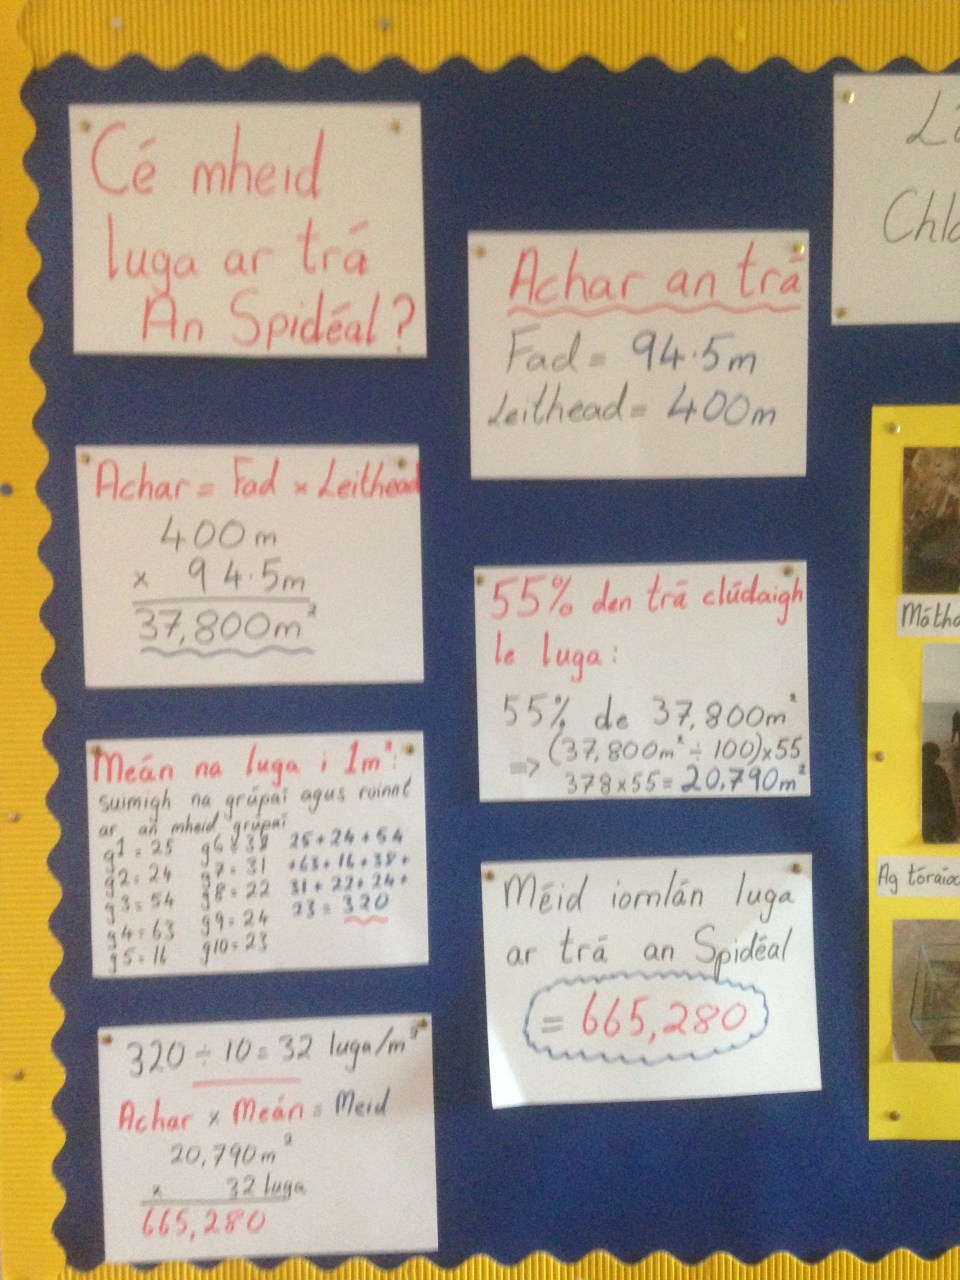 Cé mheid
luga ar trá
An Spidéal?
Achar an trá
Fad = 94.5m
Leithead = 400m
Achar = Fad × Leithead
400m
× 94.5m
37,800m²
55% den trá clúdaigh
le luga:
55% de 37,800m²
=> (37,800m² ÷ 100)×55
378×55 = 20,790m²
Meán na luga i 1m²:
suimigh na grúpaí agus roinnt
ar an mheid grúpaí
g1 = 25
g2 = 24
g3 = 54
g4 = 63
g5 = 16
g6 = 38
g7 = 31
g8 = 22
g9 = 24
g10 = 23
25 + 24 + 54
+ 63 + 16 + 38 +
31 + 22 + 24 +
23 = 320
320 ÷ 10 = 32 luga/m²
Achar × Meán = Meid
20,790m²
× 32 luga
665,280
Méid iomlán luga
ar trá an Spidéal
= 665,280
Ag